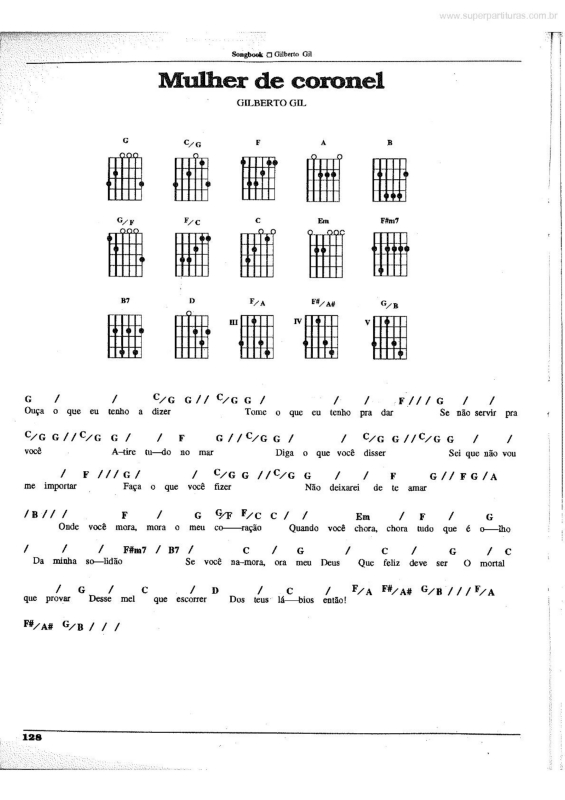 www.superpartituras.com.br
Songbook □ Gilberto Gil
Mulher de coronel
GILBERTO GIL
G C/G F A B
G/F F/C C Em F#m7
B7 D F/A F#/A# G/B
III IV V
G / / C/G G // C/G G / / / F /// G / /
Ouça o que eu tenho a dizer Tome o que eu tenho pra dar Se não servir pra
C/G G // C/G G / / F G // C/G G / / C/G G // C/G G / /
você A–tire tu–do no mar Diga o que você disser Sei que não vou
/ F /// G / / C/G G // C/G G / / F G // F G / A
me importar Faça o que você fizer Não deixarei de te amar
/ B // / F / G G/F F/C C / / Em / F / G
Onde você mora, mora o meu co—ração Quando você chora, chora tudo que é o—lho
/ / / F#m7 / B7 / C / G / C / G / C
Da minha so—lidão Se você na–mora, ora meu Deus Que feliz deve ser O mortal
/ G / C / D / C / F/A F#/A# G/B /// F/A
que provar Desse mel que escorrer Dos teus lá—bios então!
F#/A# G/B / / /
128